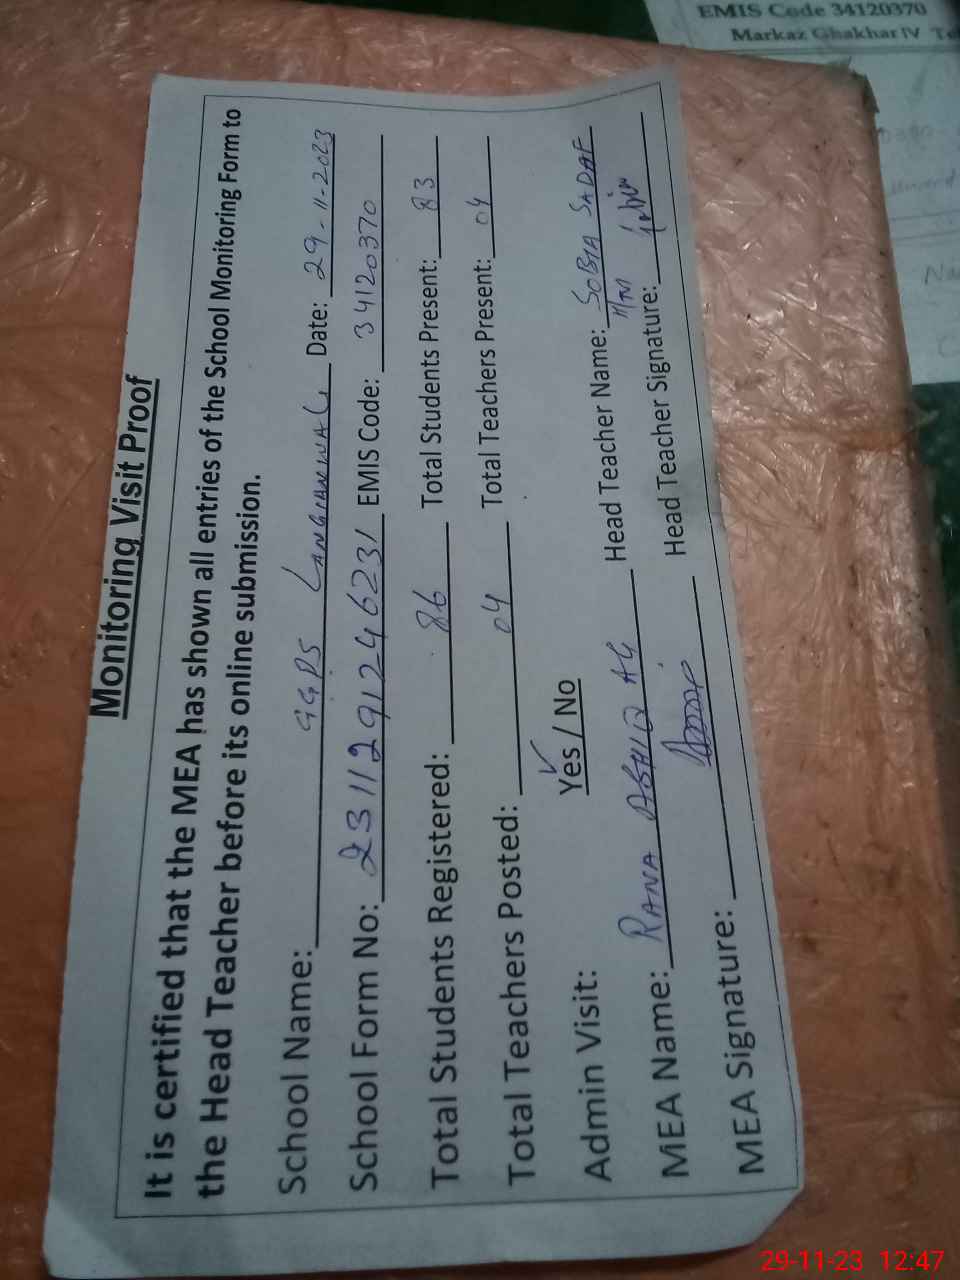 Monitoring Visit Proof
It is certified that the MEA has shown all entries of the School Monitoring Form to
the Head Teacher before its online submission.
School Name: GGPS LANGIANWALI Date: 29-11-2023
School Form No: 2311291246231 EMIS Code: 34120370
Total Students Registered: 86 Total Students Present: 83
Total Teachers Posted: 04 Total Teachers Present: 04
Admin Visit: Yes / No
MEA Name: RANA ASHIQ Head Teacher Name: SOBIA SADAF
MEA Signature: Head Teacher Signature:
EMIS Code 34120370
Markaz Ghakhar IV
29-11-23 12:47